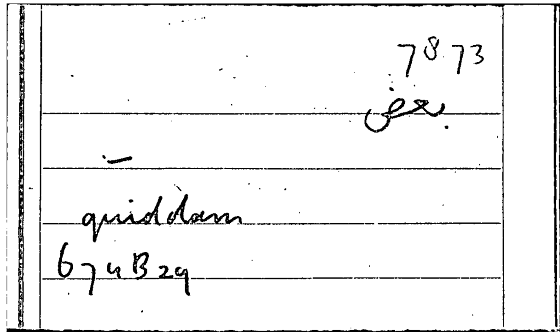 7873
بعض
–
quiddam
674B29